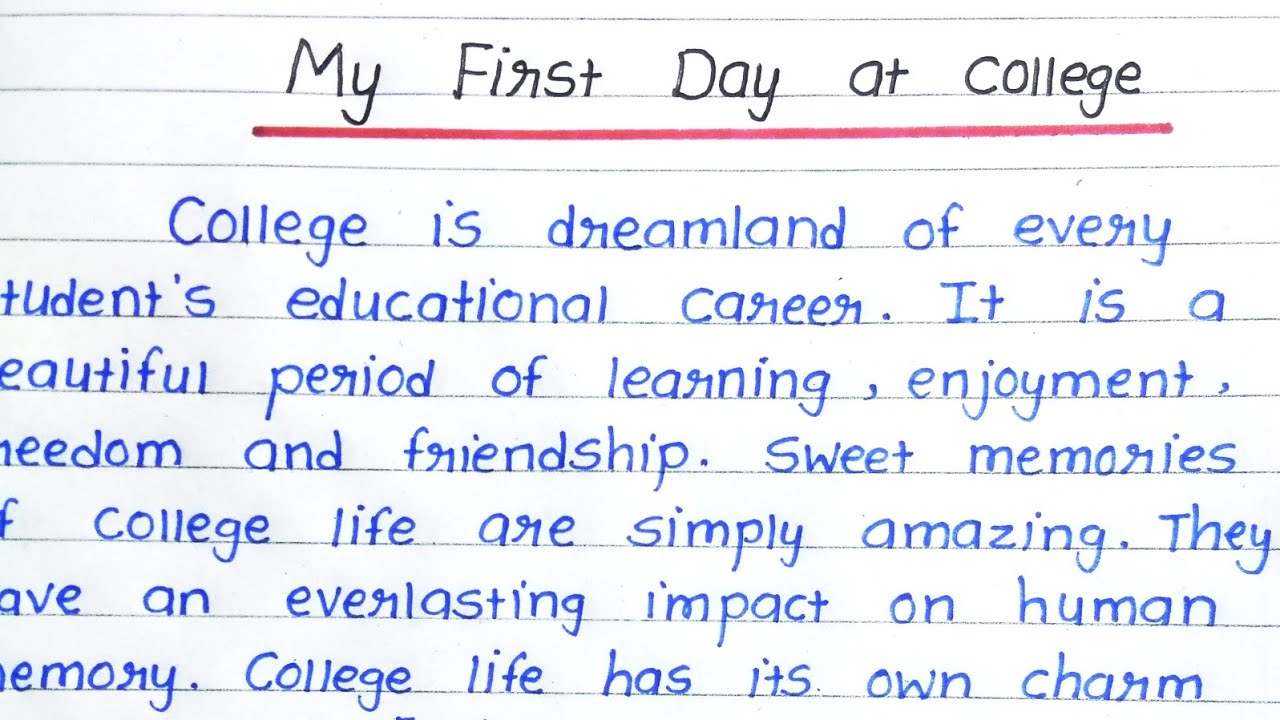 My First Day at College
College is dreamland of every
tudent's educational career. It is a
eautiful period of learning, enjoyment,
reedom and friendship. Sweet memories
f college life are simply amazing. They
ave an everlasting impact on human
emory. College life has its own charm